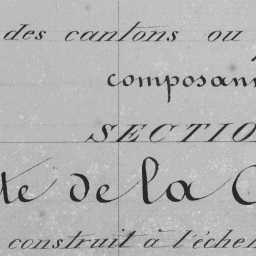 des cantons ou
composan
SECTIO
te de la C
construit à l'éche